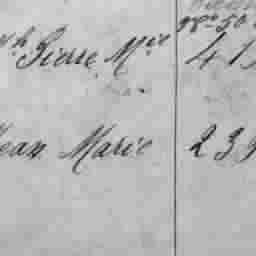 Pierre Mie 41
Jean Marie 239